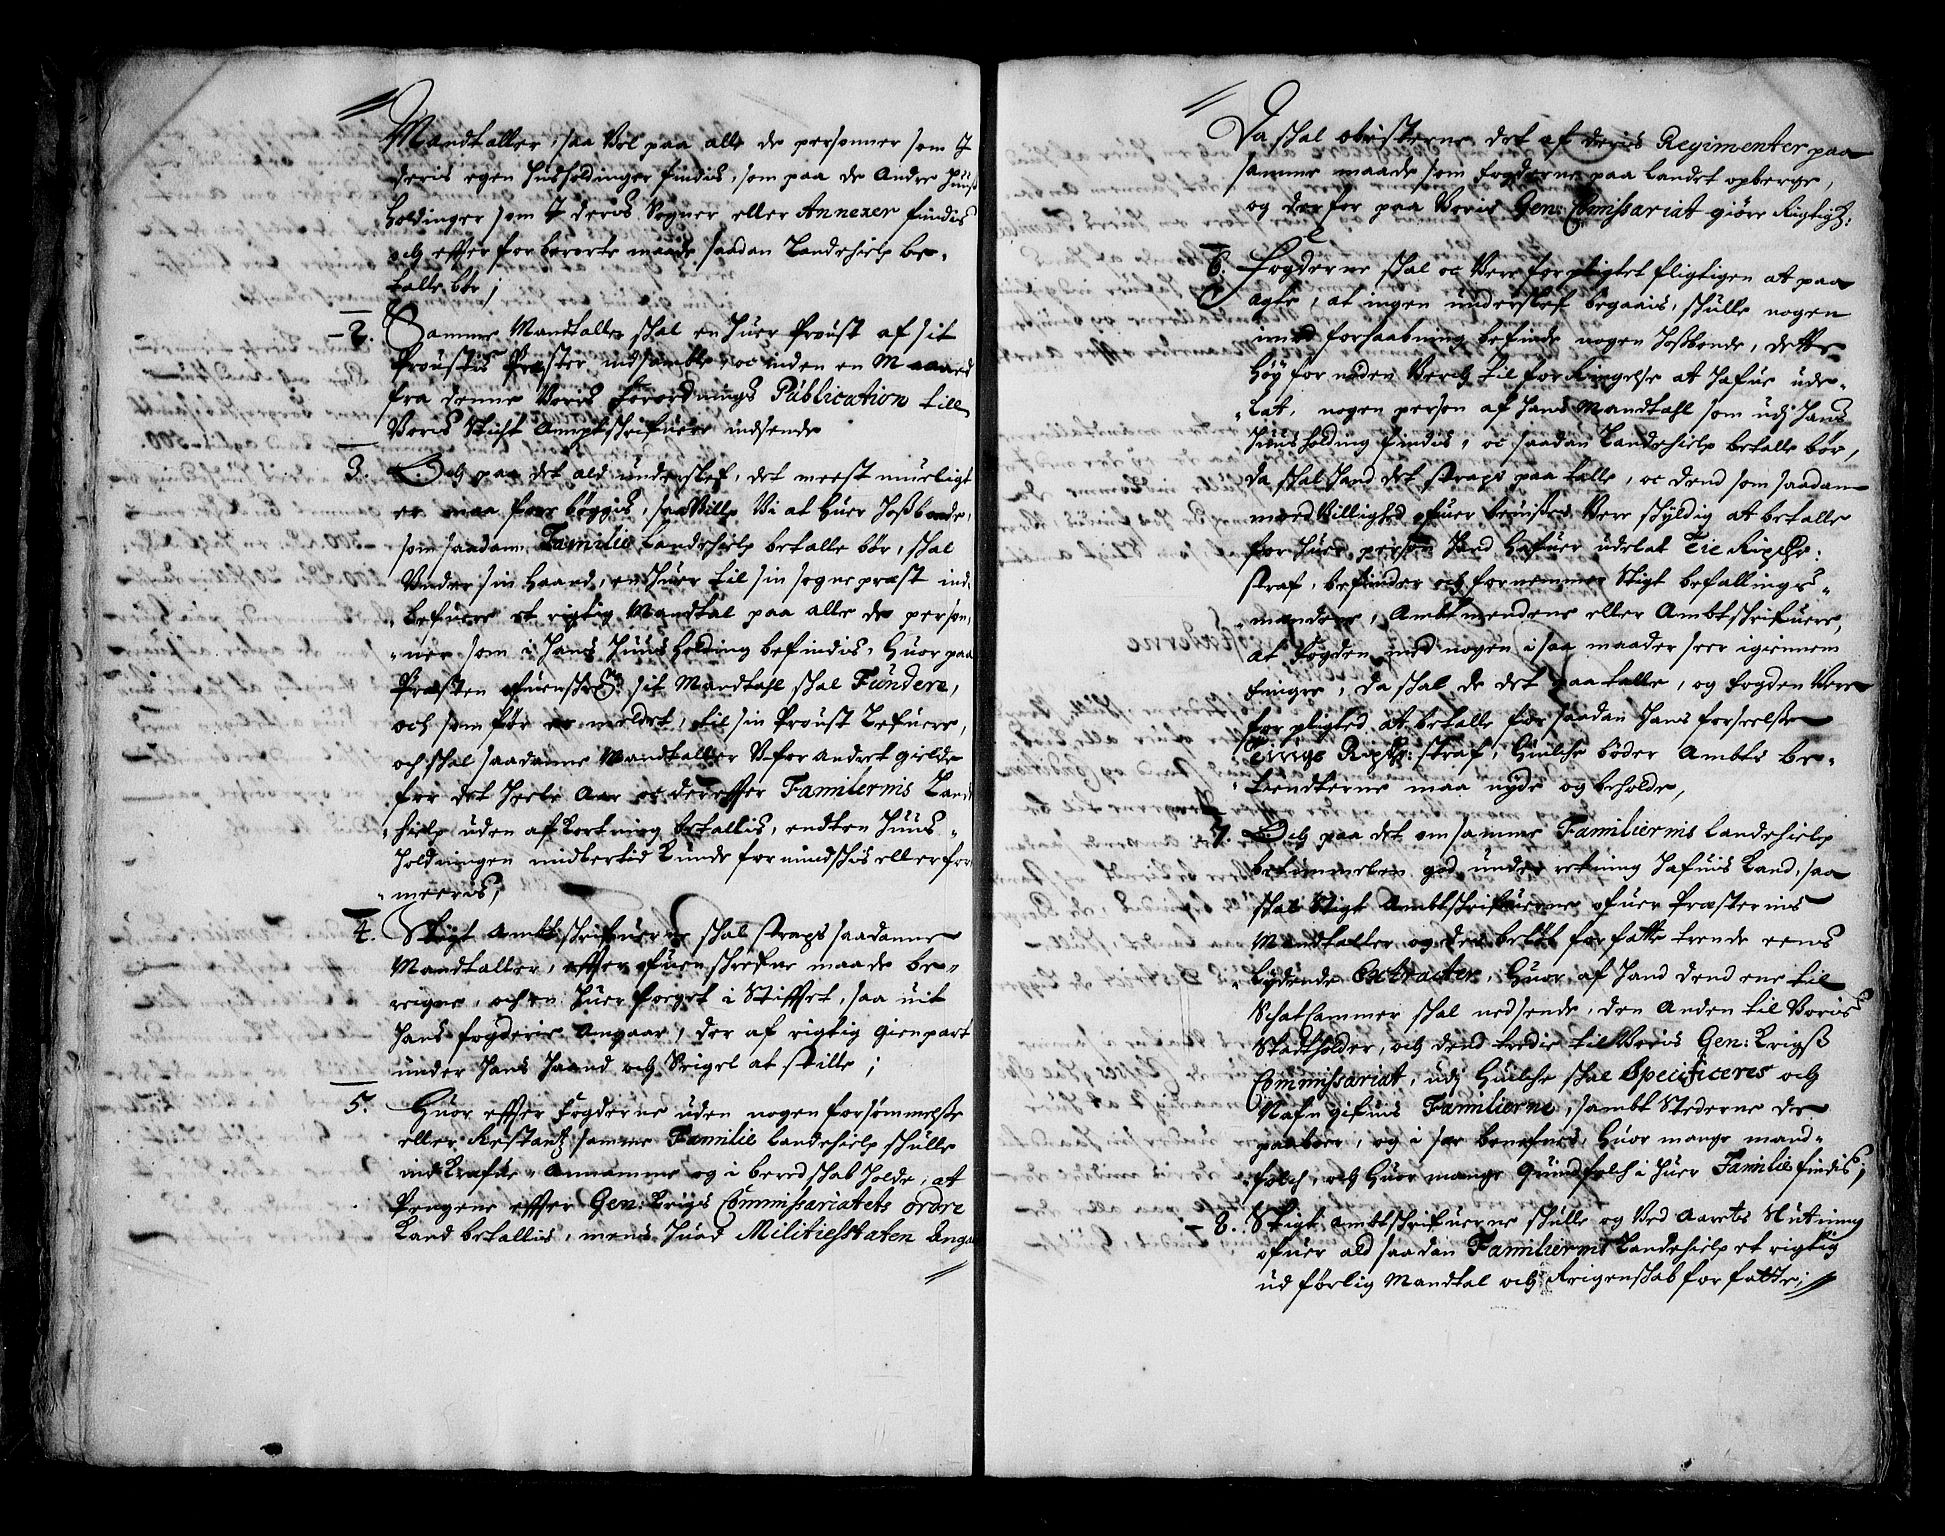 Mandtaller, saa Vel paa alle de personner som J
deris egen Huusholdinger findis, som paa de Andre Huus
Holdinger som J deris Sogner eller Annexer findis
och effter forberørte maade saadan Landehielp be-
talle bør;
2. Samme Mandtaller skal en huer Proust af sit
Proustis Præster indsamble oc inden en Maaned
fra denne Voris Forordnings Publication till
Voris Sticht Amptschrifuere indsende
3. Och paa det ald underslef, det meest mueligt
er maa forrebøggis, saa Ville Vi at Huer Hosbonde,
som saadan Familie Landehielp betalle bør, skal
Under sin Haand, enhuer til sin sognepræst ind-
lefuere et rigtig Mandtal paa alle de person-
ner som i hans Huusholding befindis, Huor paa
Præsten ofuenschr: sit Mandtahl skal Fundere,
och som før er meldet, til sin Proust Lefuere,
och skal saadanne Mandtaller Uforandret gielde
for det heele Aar oc dereffter Familiernis Land
hielp uden afkortning betallis, endten Huus-
holdningen midlertid kunde formindschis eller for-
meeris;
4. Stigt Ambtschrifuerne skal straps saadanne
Mandtaller, effter ofuenschrefne maade be-
reigne, och en huer foeget i Stifftet, saa uit
hans fogderie Angaar, der af rigtig gienpart
under hans haand och Seigel at stille;
5. Huor effter Fogderne uden nogen forsømmelse
eller Restantz samme Familie Landehielp schulle
indkræfue, Annamme og i beredschab holde, at
Pengene effter Gen: Krigs Commissariatets ordre
Kand betallis, mens huad Militieetaten Anga
Da skal obristerne det af deris Regimenter paa
samme maade som fogderne paa Landet opberge,
og derfor paa Voris Gen: Comissariat giøre Rigtigh:
6. Fogderne skal oc Vere forpligtet fligtigen at paa
agte, at ingen underslef begaais, skulle nogen
imod forhaabning befinde nogen Hosbonde, dette
høyfornøden Verch til forringelse at hafue ude-
lat, nogen person af hans Mandtahl som udj hans
Huusholding findis, oc saadan Landehielp betalle bør,
da skal hand det straps paatalle, oc dend som saadan
moedvillighed ofuerbevises Vere skyldig at betalle
for huer person hand hafuer udelat Tie Rixdlr:
straf, befinder och fornemmer Stigt befallings-
mandene, Ambtmendene eller Ambtschrifuere,
at Fogden med nogen i saa maader seer igiennem
finger, da skal de det paatalle, og fogden Vere
forpligted at betalle for saadan hans forseelse
Tiuge Rixdr: straf, Huilche bøder Ambts be-
tiendterne maa nyde og beholde,
7. Och paa det om samme Familiernis Landehielp
bekommelen god underretning hafuis kand, saa
skal Stigt Ambtschrifuerne ofuer Præsternis
Mandtaller og des beløb forfatte trende eens
lydende Extracter, Huor af hand dend ene til
Schatkammer skal nedsende, den Anden til Voris
Stadtholder, och dend tredie til Voris Gen: Krigs
Commissariat, udj Huilche skal Specificeres och
Nafngifuis Familierne, sambt Stederne de
paaboer, og i sær benefnes, Huor mange mand-
folch, och Huor mange Quindfolch i huer Familie findis;
8. Stigt Ambtschrifuerne skulle og Ved Aarets Slutning
ofuer ald saadan Familiernis Landehielp et rigtig
udførlig Mandtal och Reigenschab forfatte;